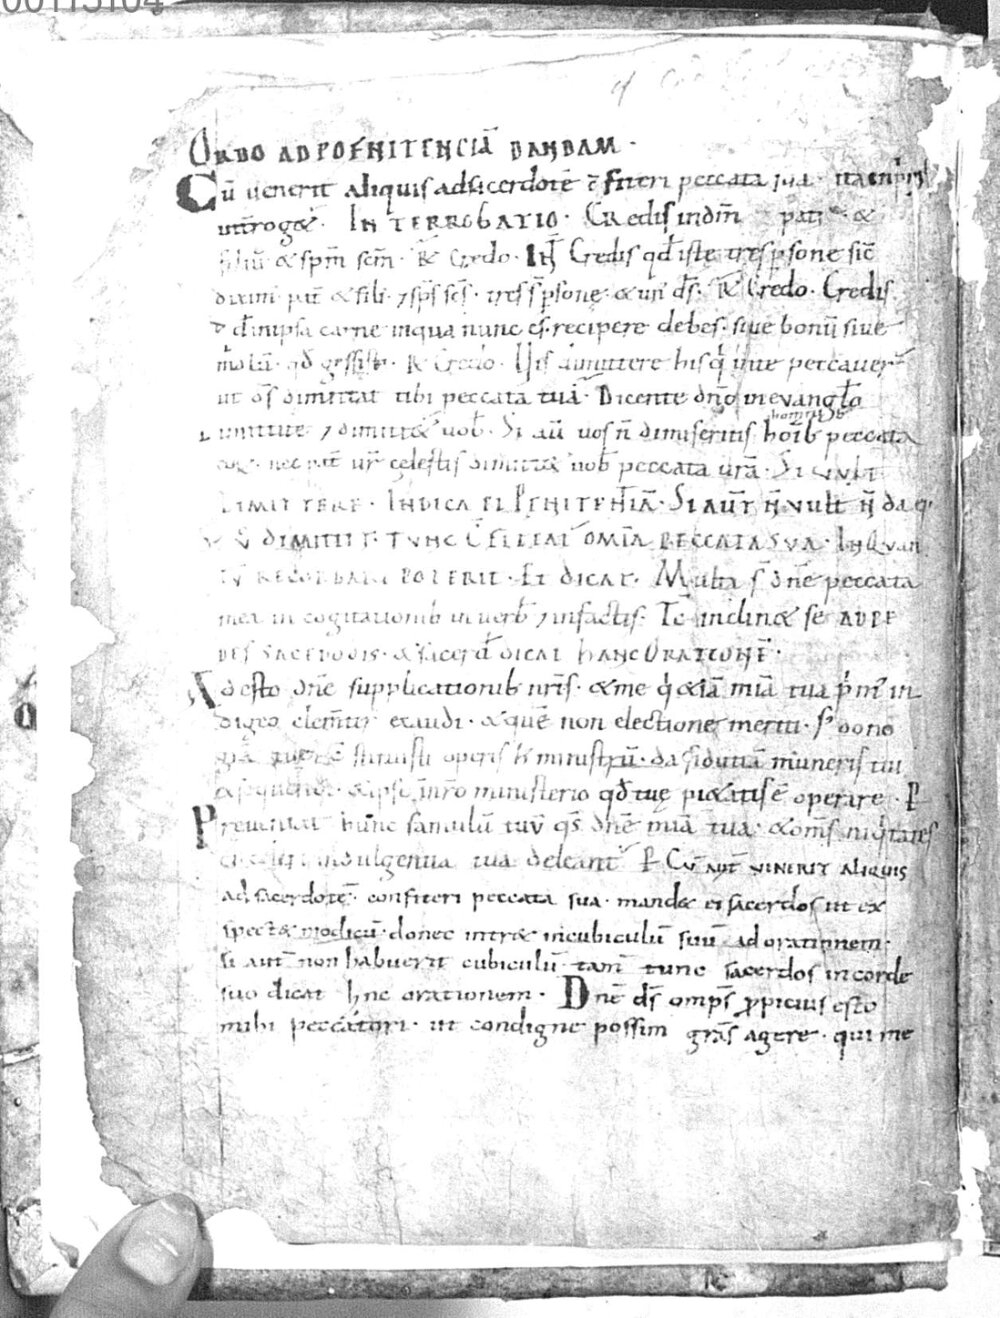 ORDO AD POENITENCIĀ DANDAM ·
Cū venerit aliquis ad sacerdotē c̄fiteri peccata sua · ita
int̄roget · INTERROGATIO · Credis in dm̄ patr̄ &
filiū & spm̄ scm̄ · R̄ Credo · Int̄ Credis qd̄ iste tres psone sic̄
diximꝰ pat̄ & fili⁊ sps̄ scs̄ · tres s̄ psone & un' ds̄ · R̄ Credo · Credis
qd̄ in ipsa carne in qua nunc es · recipere debes · sive bonū sive
malū · qd gessisti · R̄ Credo · Vis dimittere his q' in te peccaver̄
ut ds̄ dimittat tibi peccata tua · Dicente dn̄o in evangl̄o
dimittite ⁊ dimittet̄ vob̄ · Si aū vos n̄ dimiseritis hōib peccata
nec pat̄ vr̄ celestis dimittet vob̄ peccata vrā · SI VULT
DIMITTERE · INDICA EI PENITENTIĀ · SI AUT̄ N̄ vult n̄ da q'
DIMITTIT · TUNC OMĪA PECCATA SUA · IN QUAN
TŪ RECORDARI POTERIT · ET DICAT · Multa s̄ dn̄e peccata
mea in cogitationib in verb̄ ⁊ in factis · Tc̄ inclinet se ANTE
PEDES SACERDOTIS · & sacerd̄ DICAT HANC ORATIONĒ ·
Adesto dn̄e supplicationib nr̄is · & me q' etiā mīa tua p'm' in
digeo clem̄ter exaudi · & quē non electione meriti · s̄ dono
gr̄ā tuę operis ministrū · da fiduciā muneris tui
exsequendi · & ipse in nr̄o ministerio qd̄ tuę pietatis ē operare · P
Preveniat hunc famulū tuū qs̄ dn̄e mīa tua · & om̄s iniq'tates
celeri indulgentia tua deleant̄ P CŪ AUT̄ VENERIT ALIQUIS
ad sacerdotē confiteri peccata sua · mandet ei sacerdos ut ex
spectet modicū · donec intret in cubiculū suū ad orationem ·
si aut̄ non habuerit cubiculū · tam̄ tunc sacerdos in corde
suo dicat hnc orationem · Dn̄e ds̄ omps̄ ꝓpicius esto
mihi peccatori · ut condigne possim grās agere · qui me